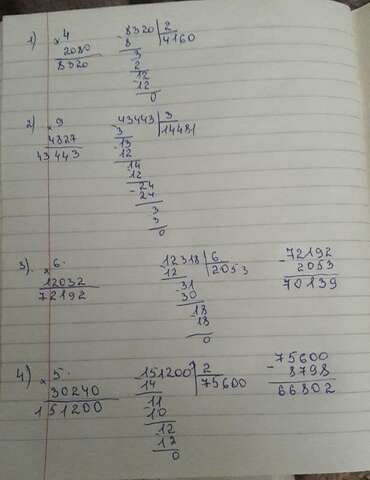 1) × 4   - 8320 | 2
2080   8   4160
8320   3
2
12
- 12
0
2) × 9   - 43443 | 3
4827   3   14481
43443   - 13
12
14
12
- 24
24
3
3
0
3). × 6.   - 12318 | 6   - 72192
12032   12   2053   2053
72192   31   70139
30
18
- 18
0
4) × 5.   - 151200 | 2   - 75600
30240   14   75600   8798
151200   11   66802
10
12
- 12
0